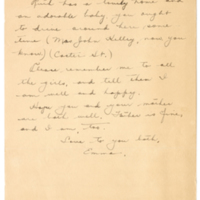 Ruth has a lovely home and
an adorable baby, you ought
to drive around here some
time (Mrs. John Kelley, now you
know) (Carter St.)
Please remember me to all
the girls, and tell them I
am well and happy.
Hope you and your mother
are both well. Father is fine,
and I am, too.
Love to you both,
Emma.